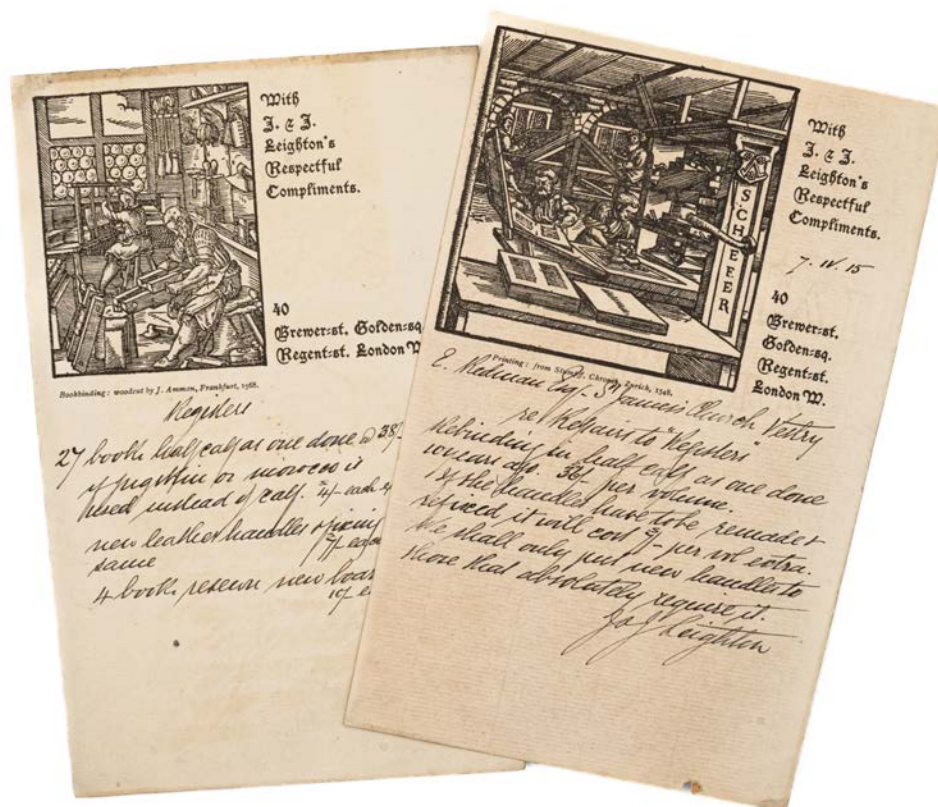 With
J. & J.
Leighton's
Respectful
Compliments.
40
Brewer=st. Golden=sq.
Regent=st. London W.
Bookbinding: woodcut by J. Ammon, Frankfurt, 1568.
Registers
27 books half calf as one done @ 38/-
if pigskin or morocco is
used instead of calf. 4/- each
new leather handles & fixing
same
4 books resewn new boar
With
J. & J.
Leighton's
Respectful
Compliments.
7. IV. 15
40
Brewer=st.
Golden=sq.
Regent=st.
London W.
SCHEFER
Printing: from Stumpf, Chronik, Zurich, 1548.
E. Redman Esq. St James Church Vestry
re. Repairs to "Registers"
Rebinding in half calf as one done
years ago. per volume.
If the handles have to be remade &
refixed it will cost per vol extra.
We shall only put new handles to
those that absolutely require it.
J & J Leighton